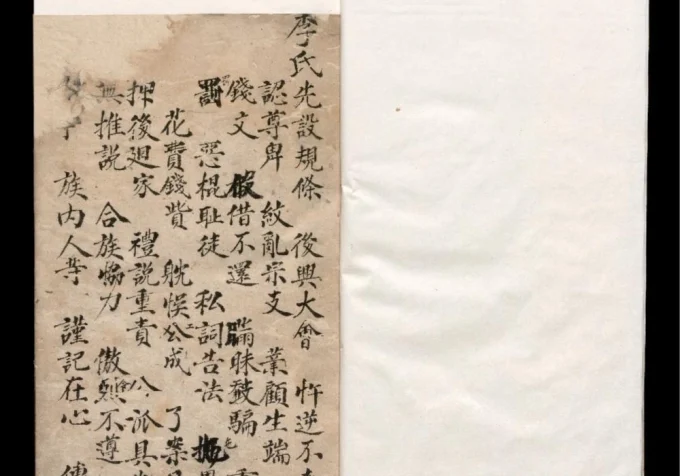 李氏先設規條 後興大會 忤逆不
認尊卑 紋亂宗支 業顧生端
錢文 假借不還 瞞昧鼓騙
罰 惡棍耻徒 私詞告法
花費錢貲 躭悞公成 了案
押後廻家 禮說重責 公派具
無推說 合族協力 傲 不遵
族内人等 謹記在心